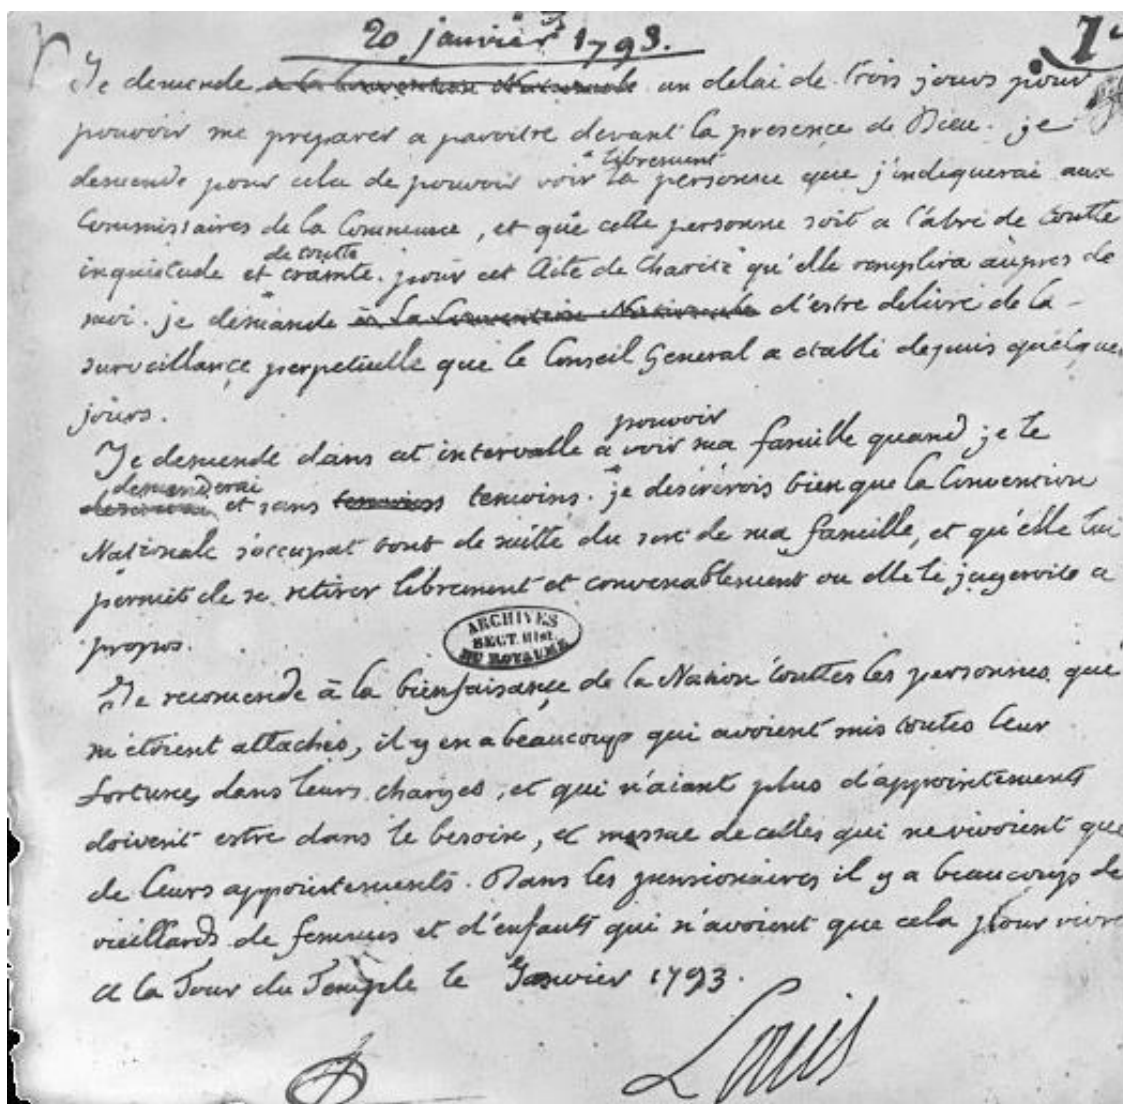 20 janvier 1793.
Je demende a la Convention Nationale un delai de trois jours pour
pouvoir me preparer a paroitre devant la presence de Dieu. je
demende pour cela de pouvoir voir librement la personne que j'indiquerai aux
Commissaires de la Commune, et que cette personne soit a l'abri de toutte
inquietude et de toutte crainte. pour cet Acte de Charité qu'elle remplira aupres de
moi. je demande à La Convention Nationale d'estre delivré de la
surveillance perpetuelle que le Conseil General a etabli depuis quelques
jours.
Je demende dans cet intervalle a pouvoir voir ma famille quand je le
demenderai et sans temoins temoins. je desirerois bien que la Convention
Nationale s'occupat tout de suitte du sort de ma famille, et qu'elle lui
permit de se retirer librement et convenablement ou elle le jugeroit a
propos.
Je recomende à la bienfaisance de la Nation touttes les personnes que
m'etoient attachés, il y en a beaucoup qui avoient mis toutes leur
fortunes dans leurs charges, et qui n'aiant plus d'appointements
doivent estre dans le besoin, et mesme de celles qui ne vivoient que
de leurs appointements. Dans les pensionaires il y a beaucoup de
vieillards de femmes et d'enfants qui n'avoient que cela pour vivre
a la Tour du Temple le Janvier 1793.
Louis
ARCHIVES
SECT. Hist
DU ROYAUME